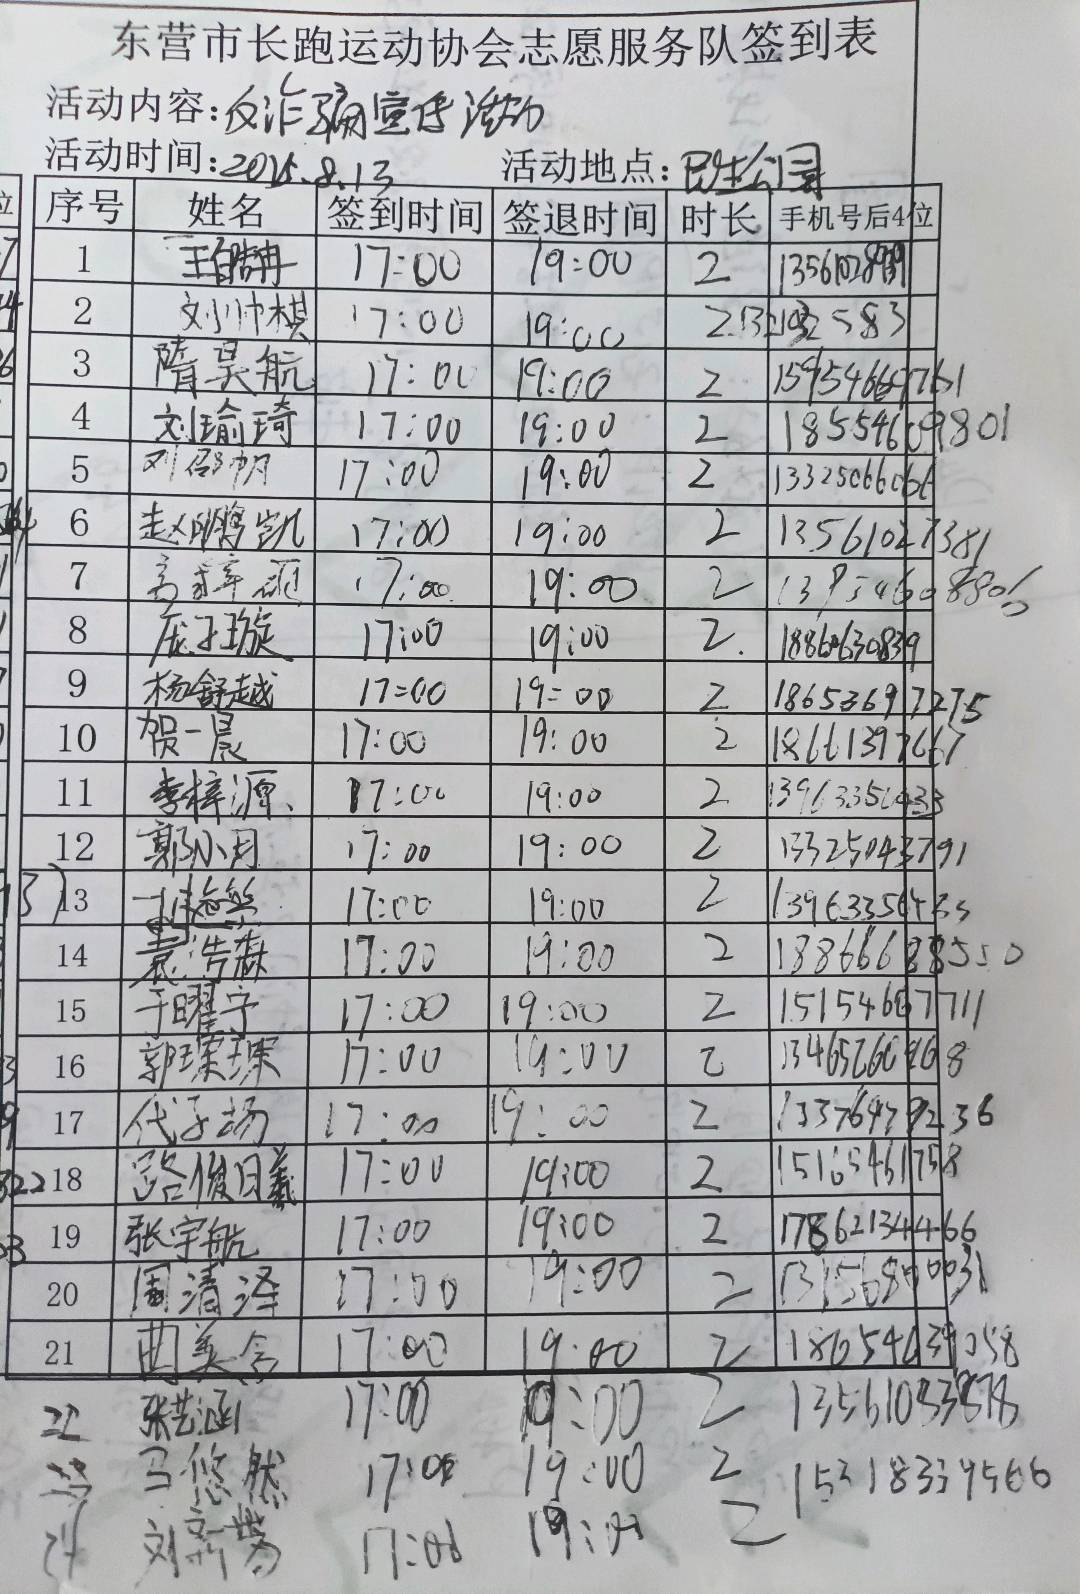 东营市长跑运动协会志愿服务队签到表
活动内容:反诈骗宣传活动
活动时间:2025.8.13 活动地点:民生公园
序号 姓名 签到时间 签退时间 时长 手机号后4位
1 17:00 19:00 2
2 刘帅棋 17:00 19:00 2
3 隋昊航 17:00 19:00 2
4 刘瑜琦 17:00 19:00 2 18554609801
5 17:00 19:00 2 13325066066
6 17:00 19:00 2 13561027381
7 17:00 19:00 2
8 庞子璇 17:00 19:00 2.
9 杨舒越 17=00 19=00 2 18653697275
10 贺一晨 17:00 19:00 2 18661397667
11 李梓源 17:00 19:00 2
12 郭小月 17:00 19:00 2 13325043791
13 17:00 19:00 2
14 袁浩森 17:00 19:00 2
15 于曜宁 17:00 19:00 2 15154667711
16 郭琛琛 17:00 19:00 2
17 代子扬 17:00 19:00 2
18 路俊曦 17:00 19:00 2 15165461758
19 张宇航 17:00 19:00 2 17862134466
20 周清泽 17:00 19:00 2
21 曲美含 17:00 19:00 2 18654639058
22 张艺涵 17:00 19:00 2 13561033878
23 马悠然 17:00 19:00 2
24 17:00 19:00 2